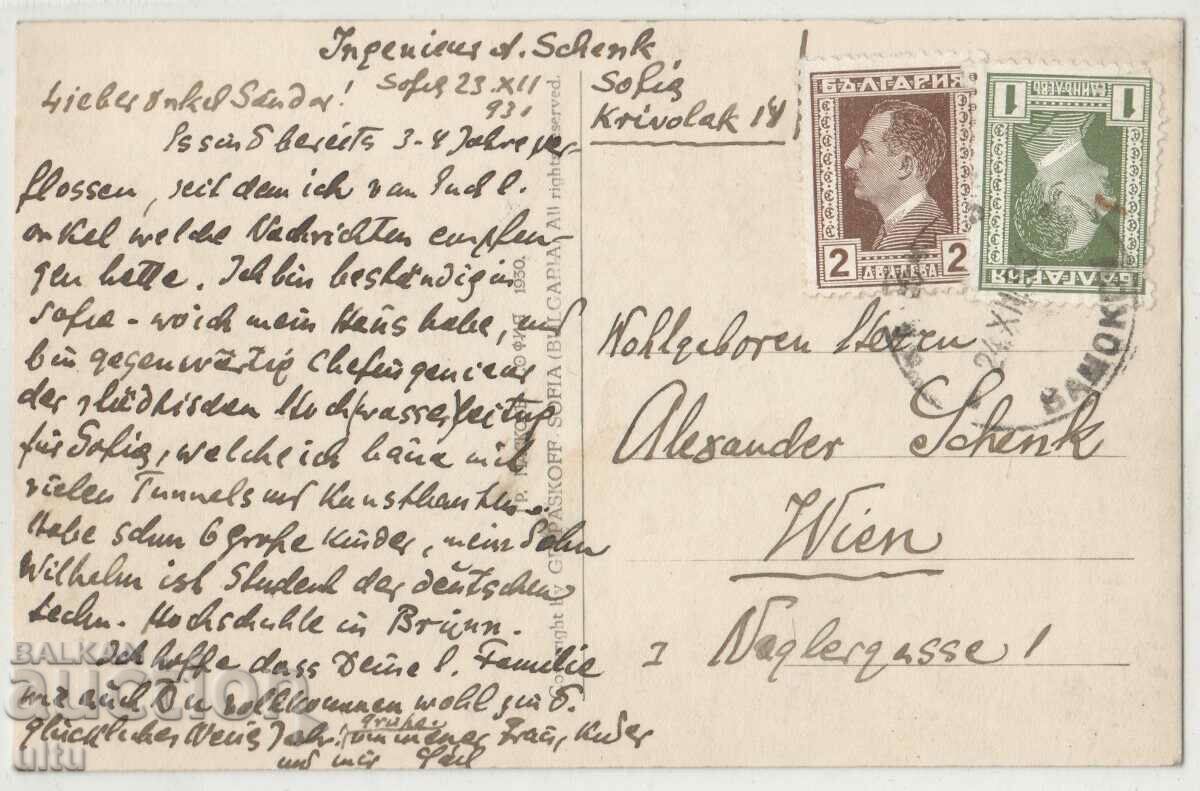 Ingenieur A. Schenk
Sofia
Krivolak 14
Sofia 23.XII
931
Lieber Onkel Sandor!
Es sind bereits 3-4 Jahre ver-
flossen, seit dem ich von
onkel welche Nachrichten empfan-
gen hatte. Ich bin beständig in
Sofia - wo ich mein Haus habe, und
bin gegenwärtig Chefingenieur
der städtischen Hoch(wasser)leitung
für Sofia, welche ich baue mit
vielen Tunnels und Kunstbauten.
Habe schon 6 große Kinder, mein Sohn
Wilhelm ist Student der deutschen
techn. Hochschule in Brünn.
Ich hoffe dass Deine l. Familie
wie auch Du vollkommen wohl sind.
glückliches Neues Jahr!
grüße
von meiner Frau, Kinder
und mir
БЪЛГАРИЯ
2 ДВА ЛЕВА 2
БЪЛГАРИЯ
1 ЕДИНЪ ЛЕВЪ 1
24.XII
Wohlgeboren Herrn
Alexander Schenk
Wien
I Naglergasse 1
СОФИЯ 1930.
Copyright by GR. PASKOFF, SOFIA (BULGARIA) All rights reserved.
BALKAN
auction
ultu